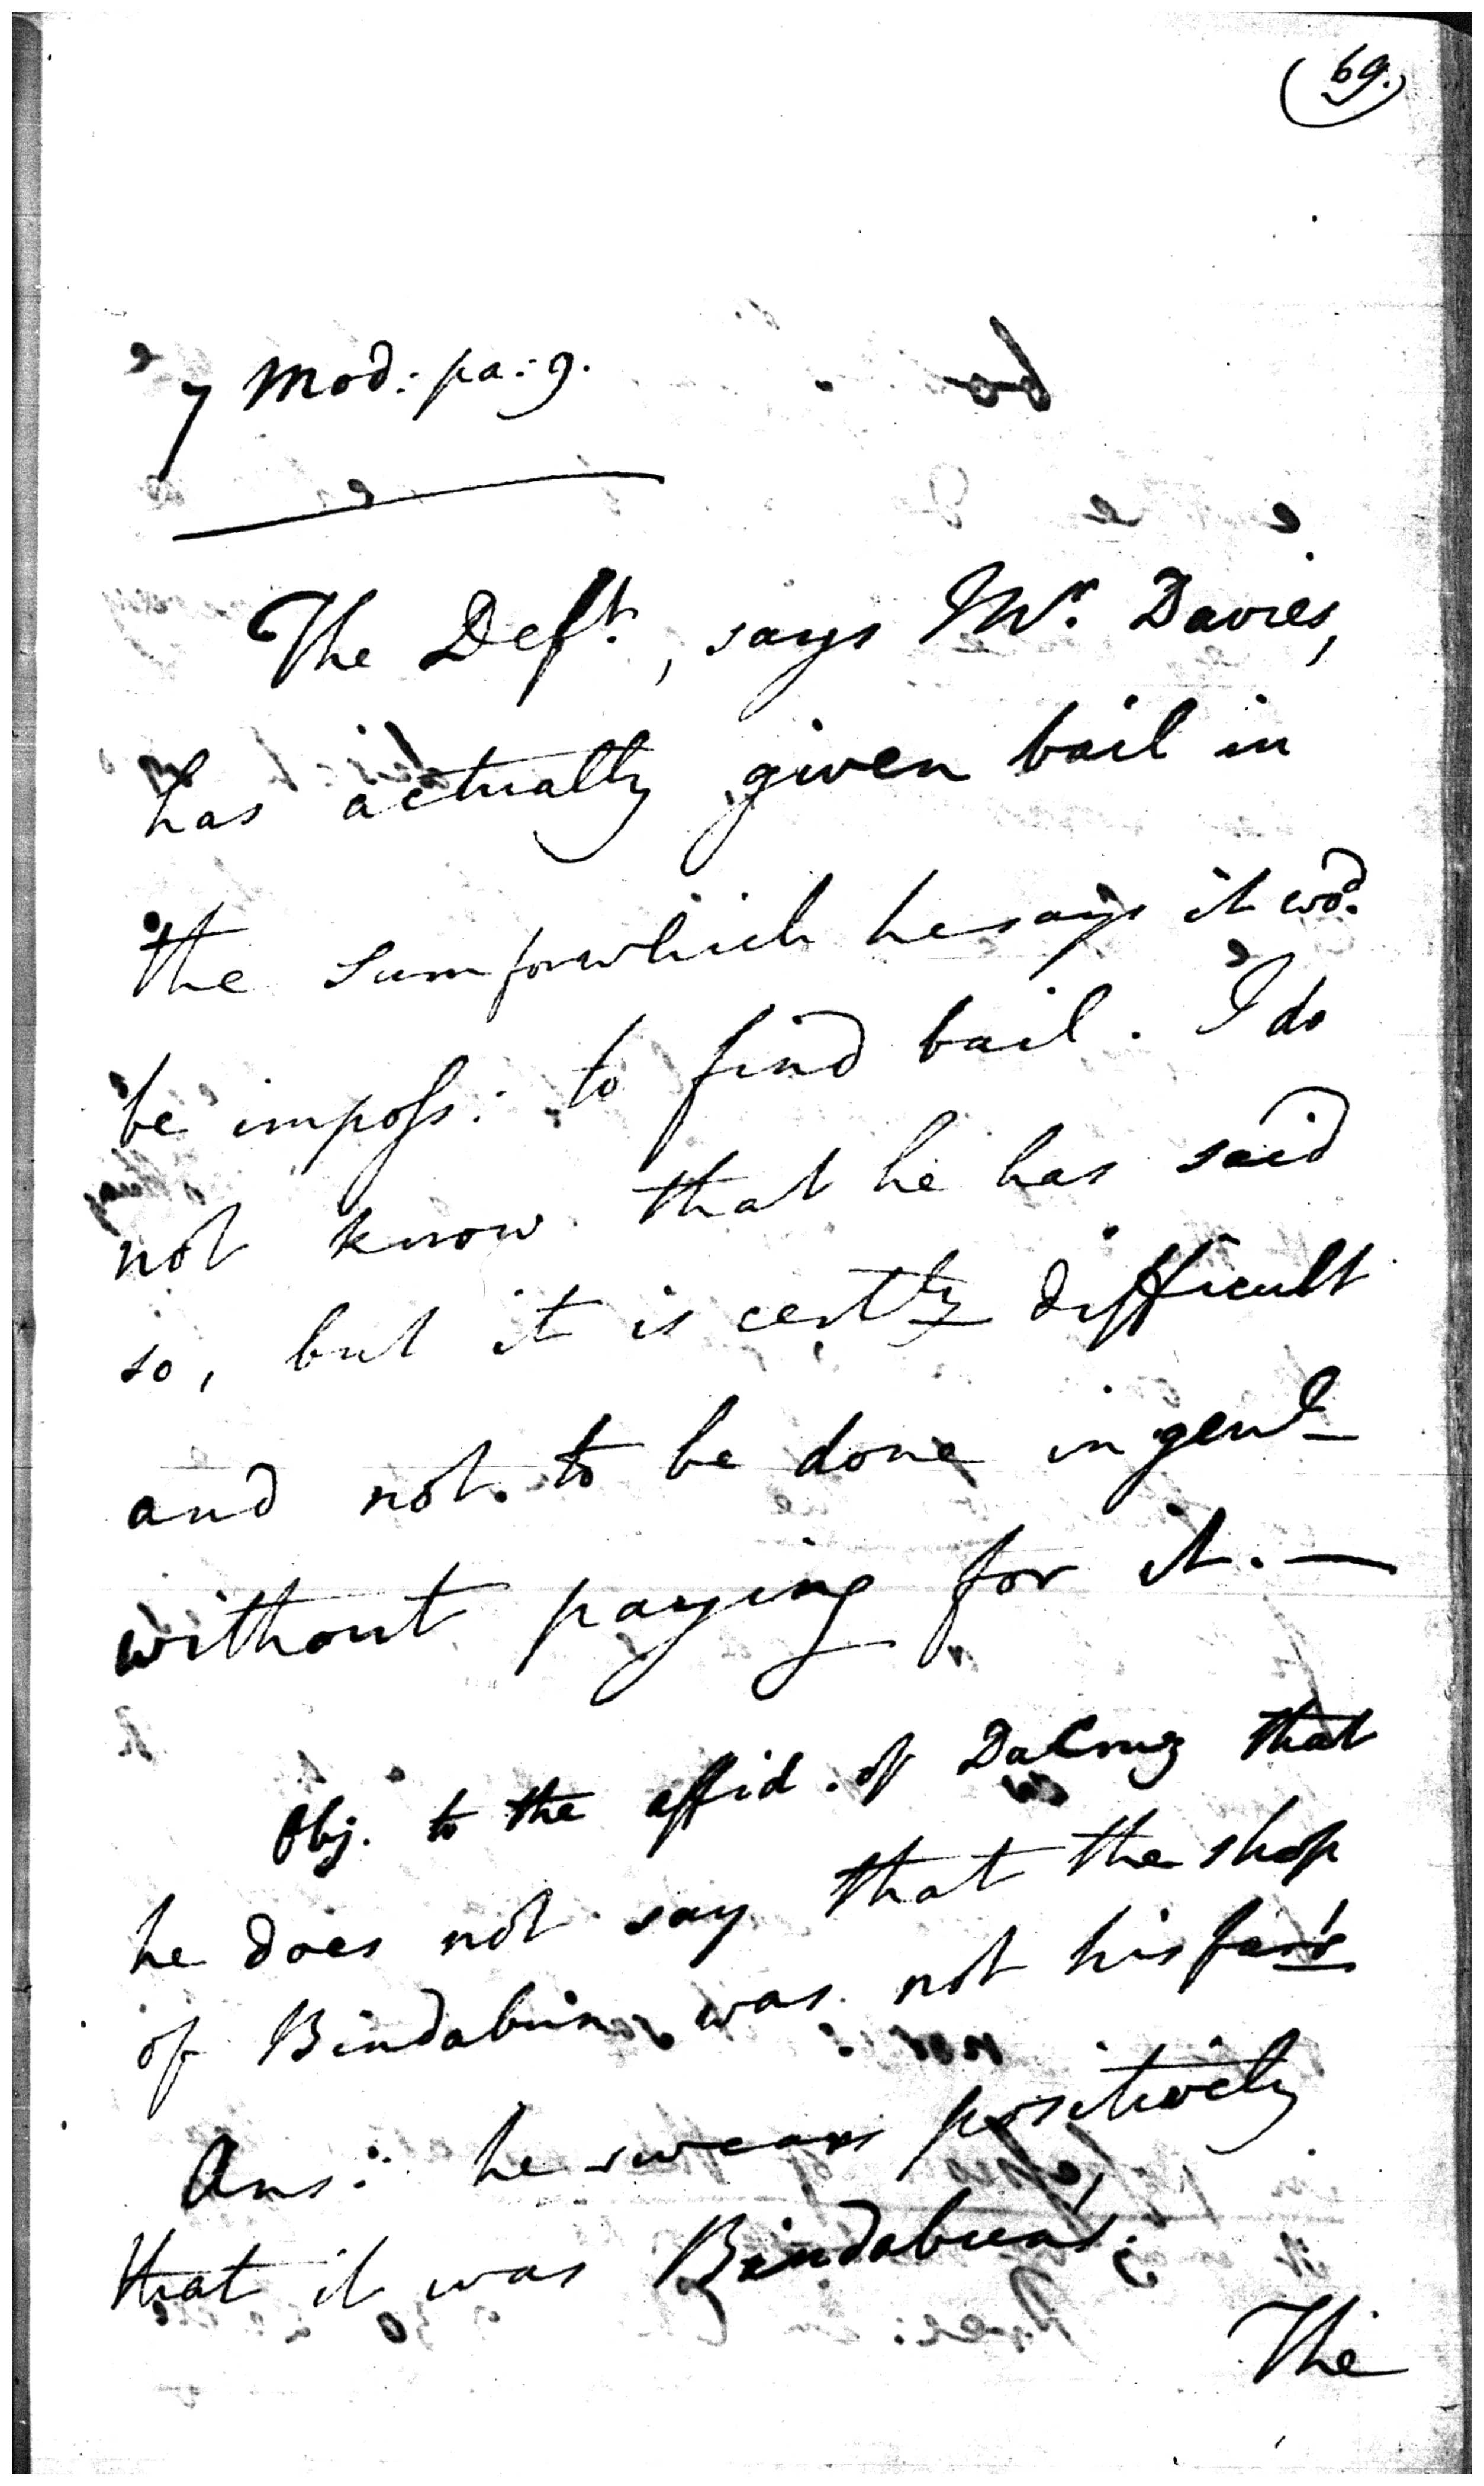 (69.)
7 Mod: pa: 9.
The Deft., says Mr. Davies,
has actually given bail in
the sum for which he says it wod.
be imposs: to find bail. I do
not know that he has said
so, but it is certly difficult
and not to be done in genl
without paying for it. —
Obj. to the affid. of DaCruz that
he does not say that the shop
of Bindabun was not his
Ans: he swears positively
that it was Bindabun's.
The